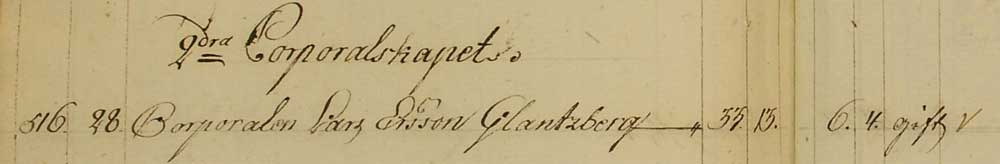 2dra Corporalskapet.
516. 28 Corporalen Lars Ersson Glantzberg — " 35 13. 6. 4. gift √